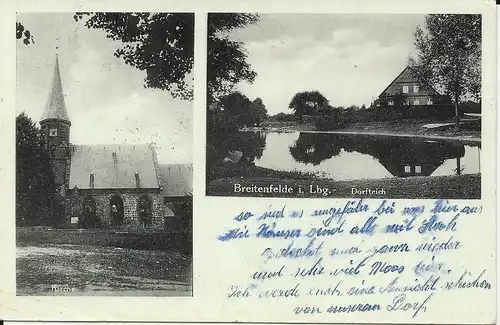 Breitenfelde i. Lbg. Dorfteich
so sind es ungefähr bei uns hier aus
die Häuser sind alle mit Stroh
gedeckt und ganz nieder
und sehr viel Moos
Ich werde euch eine Ansicht schicken
von unseren Dorf
Kirche